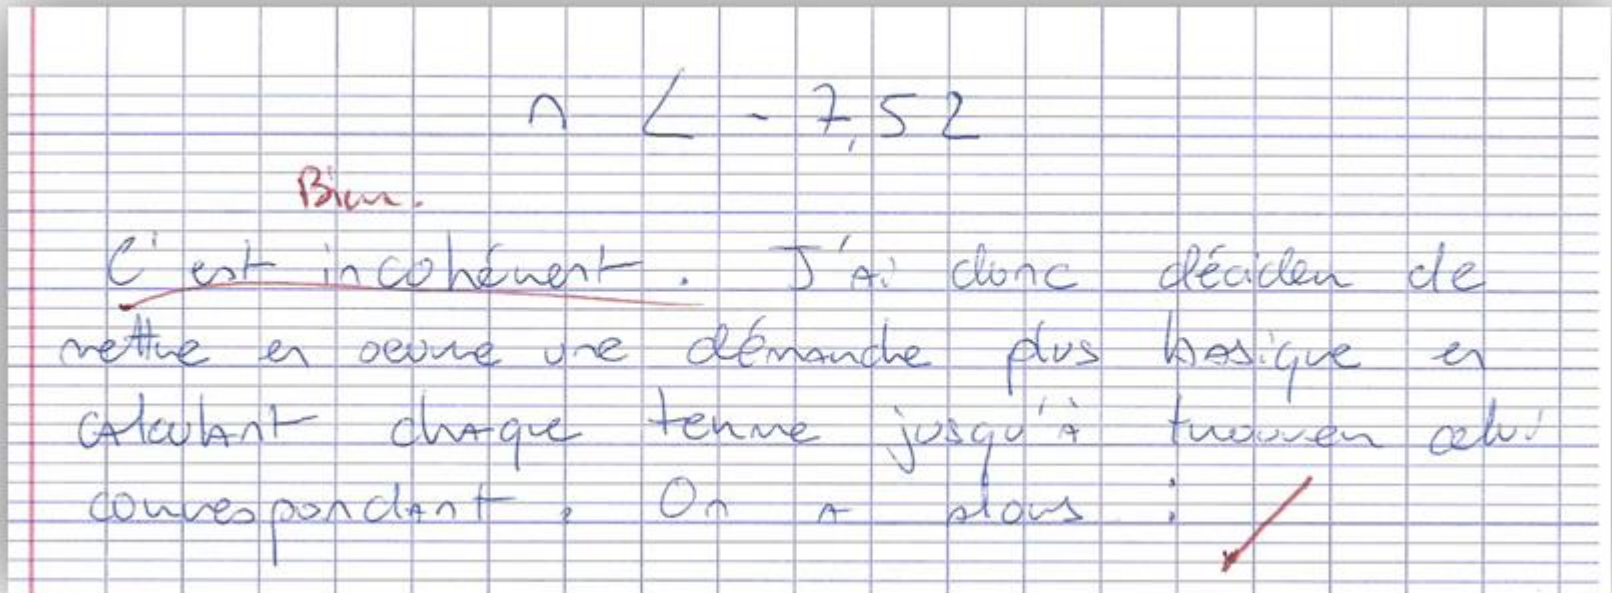 n < - 7,52
Bien.
C'est incohérent. J'ai donc décider de
mettre en oeuvre une démarche plus basique en
calculant chaque terme jusqu'à trouver celui
correspondant. On a alors :